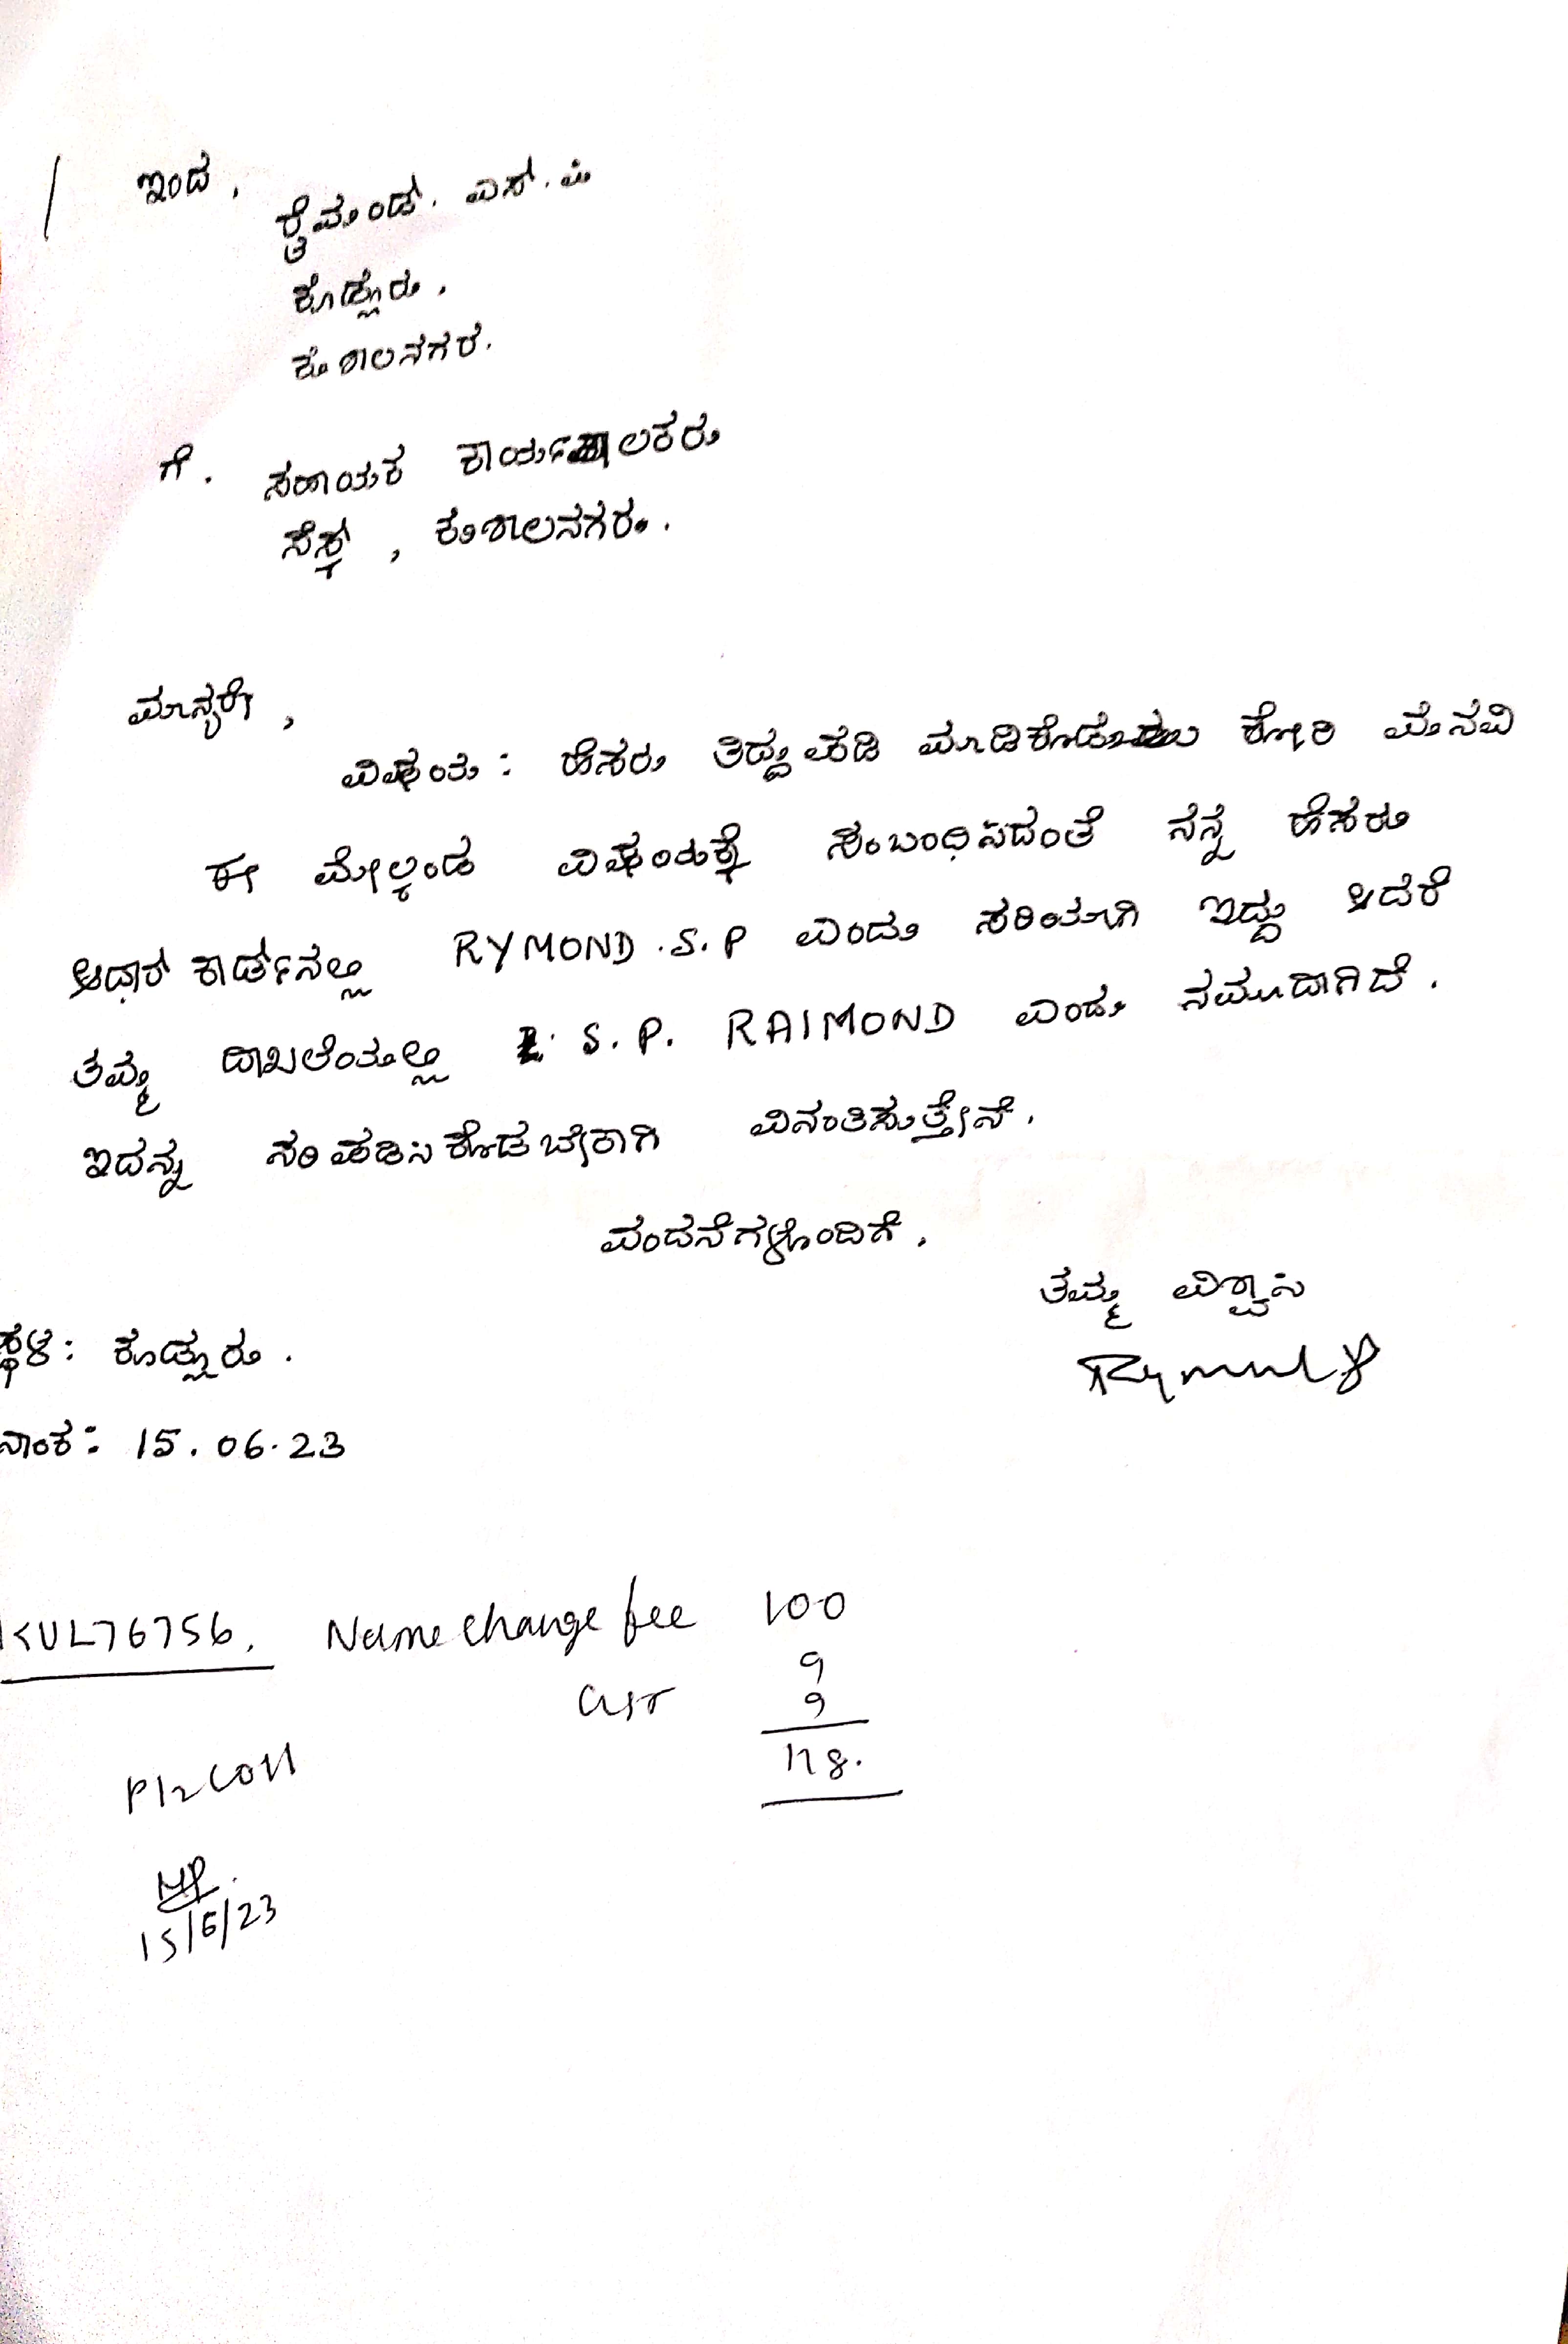 ಇಂದ,
ರೈಮಂಡ್. ಎಸ್. ಪಿ
ಕೊಡ್ಲೂರು,
ಕುಶಾಲನಗರ.
ಗೆ. ಸಹಾಯಕ ಕಾರ್ಯಪಾಲಕರು
ಸೆಸ್ಕ್, ಕುಶಾಲನಗರ.
ಮಾನ್ಯರೇ,
ವಿಷಯ: ಹೆಸರು ತಿದ್ದುಪಡಿ ಮಾಡಿಕೊಡಲು ಕೋರಿ ಮನವಿ
ಈ ಮೇಲ್ಕಂಡ ವಿಷಯಕ್ಕೆ ಸಂಬಂಧಿಸಿದಂತೆ ನನ್ನ ಹೆಸರು
ಆಧಾರ್ ಕಾರ್ಡ್‌ನಲ್ಲಿ RYMOND.S.P ಎಂದು ಸರಿಯಾಗಿ ಇದ್ದು ಆದರೆ
ತಮ್ಮ ದಾಖಲೆಯಲ್ಲಿ S.P. RAIMOND ಎಂದು ನಮೂದಾಗಿದೆ.
ಇದನ್ನು ಸರಿಪಡಿಸಿಕೊಡಬೇಕಾಗಿ ವಿನಂತಿಸುತ್ತೇನೆ.
ವಂದನೆಗಳೊಂದಿಗೆ.
ತಮ್ಮ ವಿಶ್ವಾಸಿ
ಸ್ಥಳ: ಕೊಡ್ಲೂರು.
ನಾಂಕ: 15.06.23
KUL76756. Name change fee 100
9
GST 9
118.
Plz Coll
15/6/23